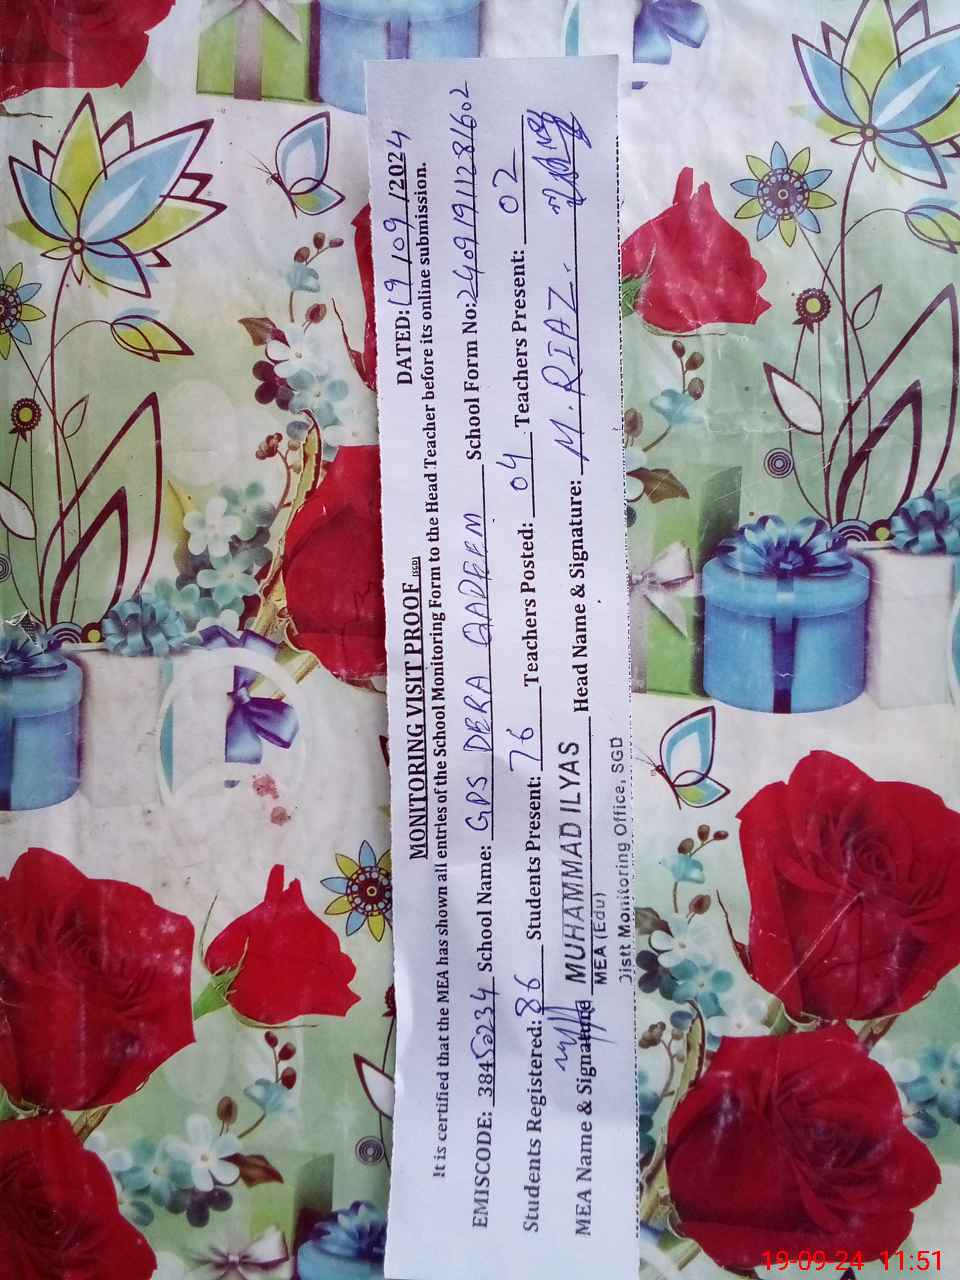 MONITORING VISIT PROOF (SGD) DATED: 19/09/2024
It is certified that the MEA has shown all entries of the School Monitoring Form to the Head Teacher before its online submission.
EMISCODE: 3845234 School Name: GPS DERA QADEEM School Form No: 24091911281602
Students Registered: 86 Students Present: 76 Teachers Posted: 04 Teachers Present: 02
MEA Name & Signature MUHAMMAD ILYAS Head Name & Signature: M. RIAZ.
MEA (Edu)
Distt Monitoring Office, SGD
19-09-24 11:51